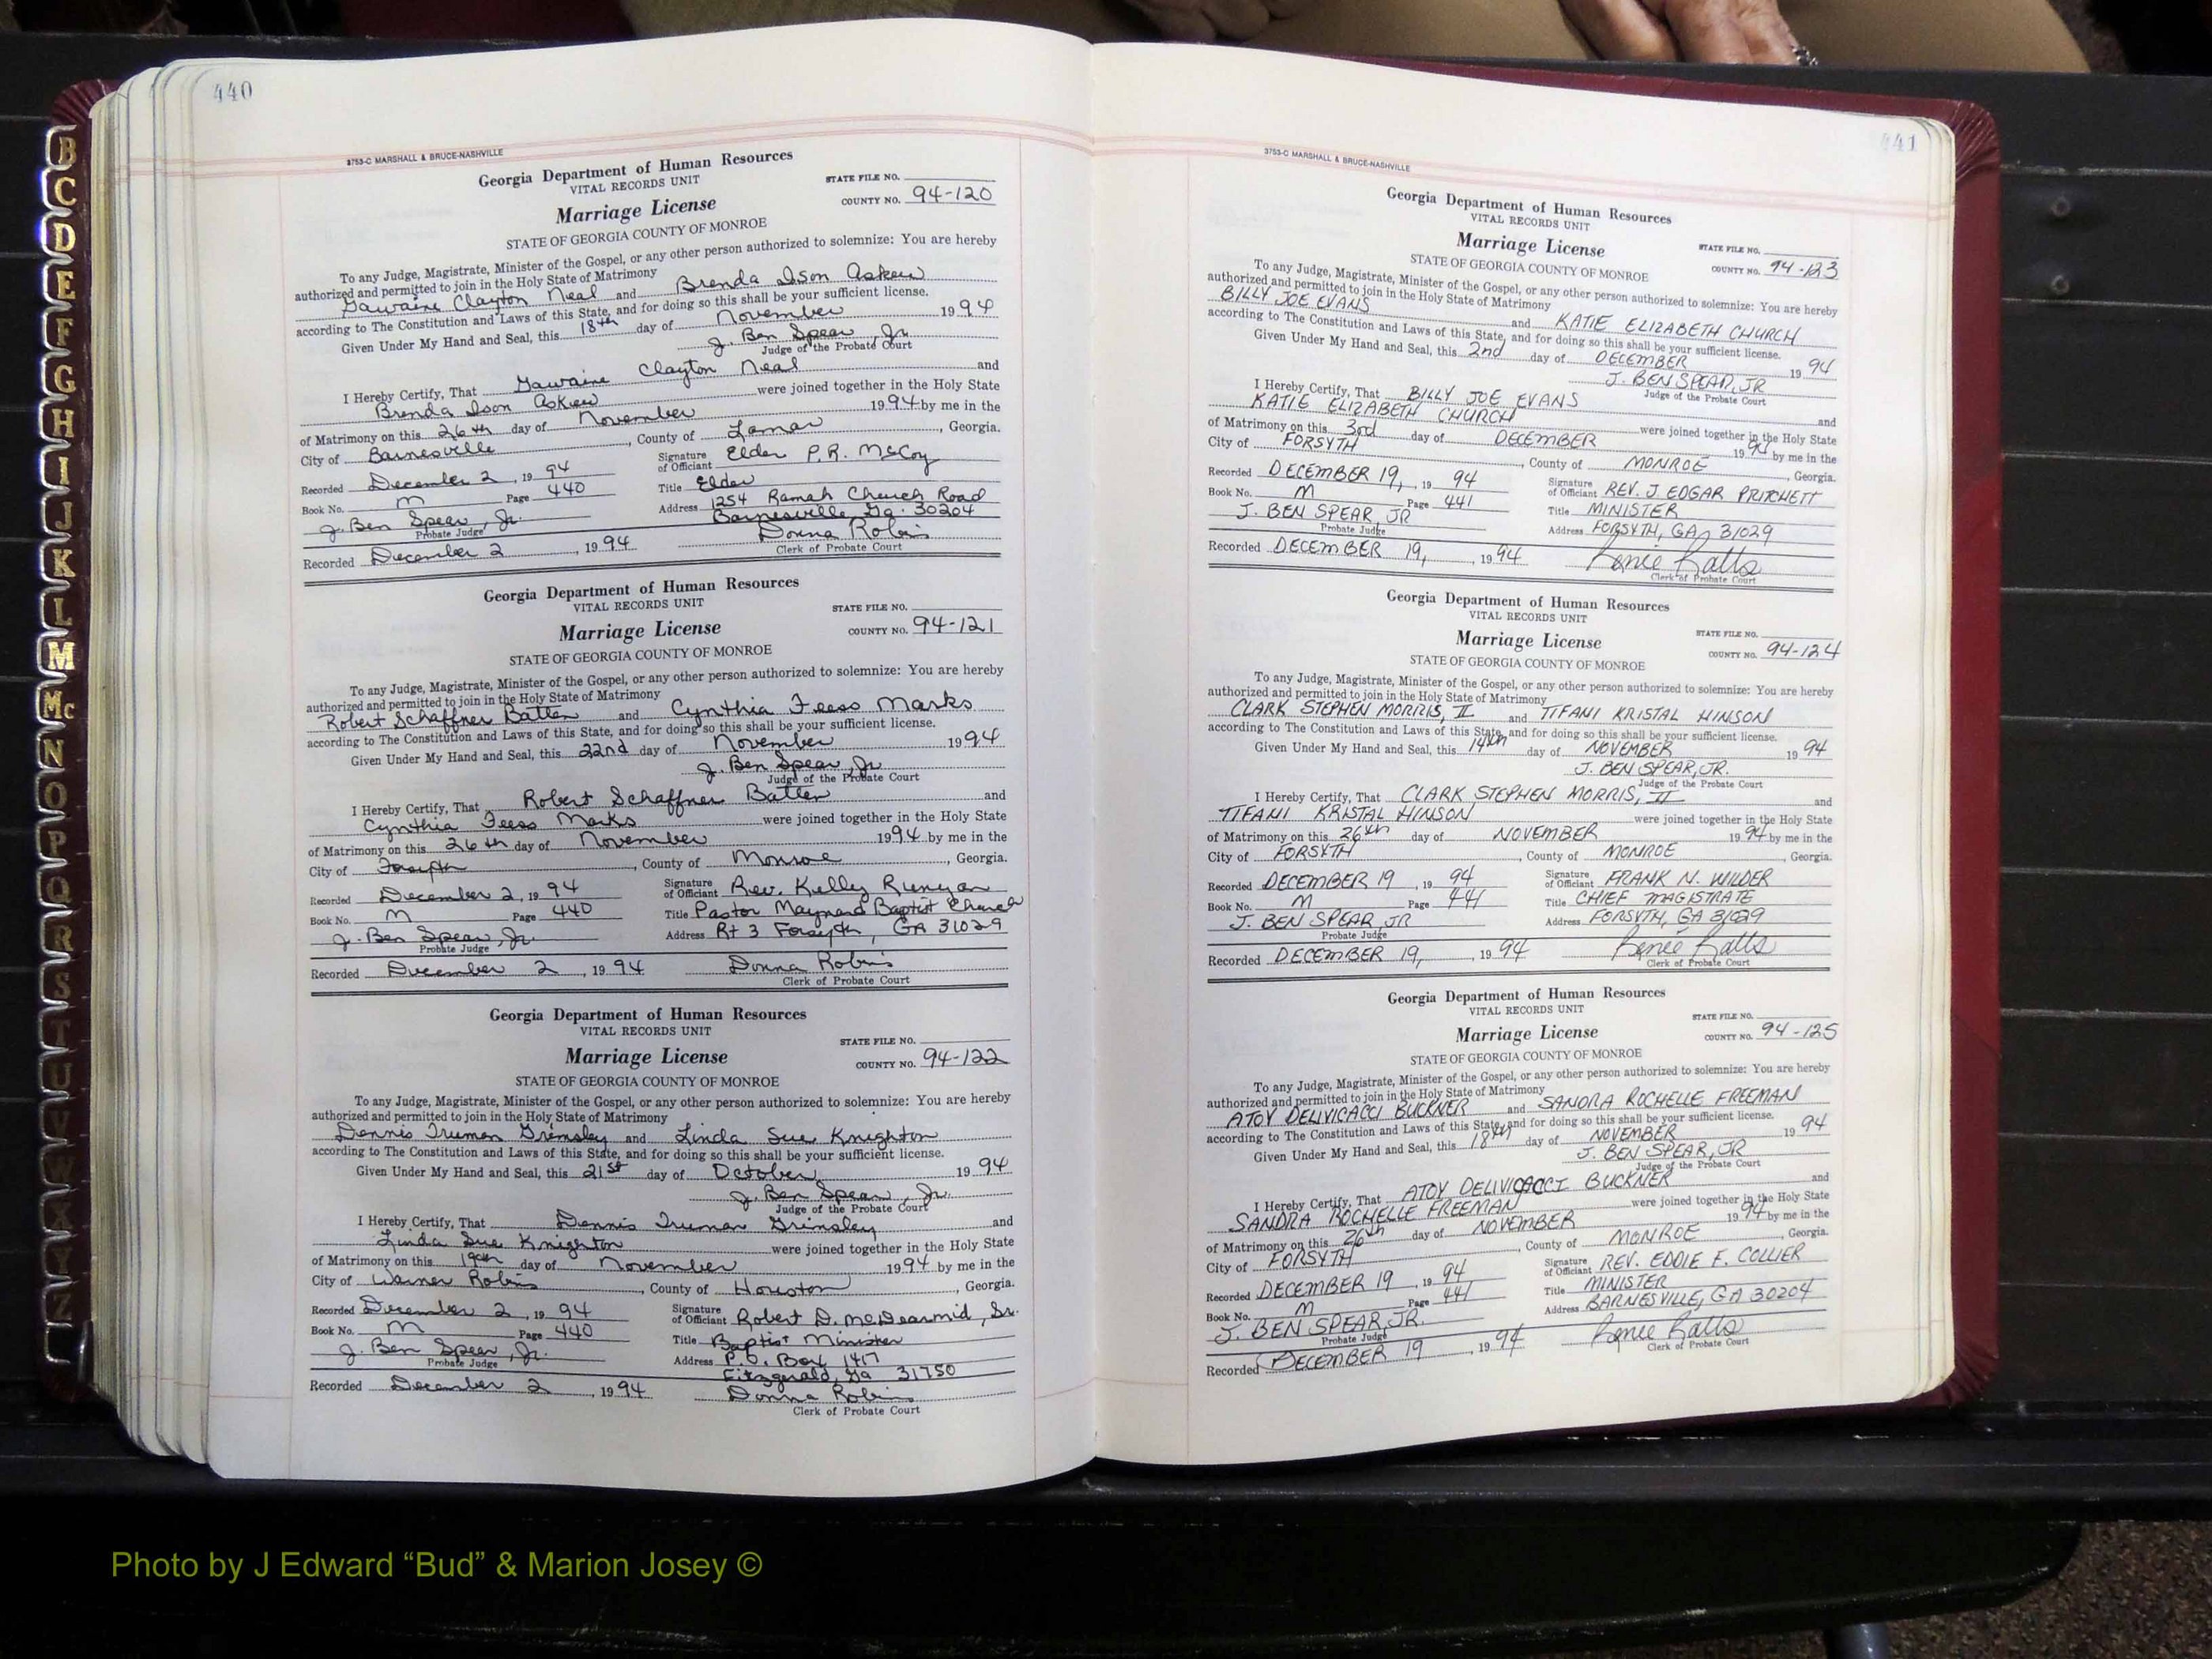 440
3753-C MARSHALL & BRUCE-NASHVILLE
Georgia Department of Human Resources
VITAL RECORDS UNIT
STATE FILE NO.
Marriage License
COUNTY NO. 94-120
STATE OF GEORGIA COUNTY OF MONROE
To any Judge, Magistrate, Minister of the Gospel, or any other person authorized to solemnize: You are hereby
authorized and permitted to join in the Holy State of Matrimony
Gawaine Clayton Neal and Brenda Ison Askew
according to The Constitution and Laws of this State, and for doing so this shall be your sufficient license.
Given Under My Hand and Seal, this 18th day of November 1994
J. Ben Spear, Jr.
Judge of the Probate Court
I Hereby Certify, That Gawaine Clayton Neal and
Brenda Ison Askew were joined together in the Holy State
of Matrimony on this 26th day of November 1994 by me in the
City of Barnesville, County of Lamar, Georgia.
Recorded December 2, 1994 Signature of Officiant Elder P.R. McCoy
Book No. M Page 440 Title Elder
J. Ben Spear, Jr. Address 1254 Ramah Church Road
Probate Judge Barnesville, Ga. 30204
Recorded December 2, 1994 Donna Robins
Clerk of Probate Court
Georgia Department of Human Resources
VITAL RECORDS UNIT
STATE FILE NO.
Marriage License
COUNTY NO. 94-121
STATE OF GEORGIA COUNTY OF MONROE
To any Judge, Magistrate, Minister of the Gospel, or any other person authorized to solemnize: You are hereby
authorized and permitted to join in the Holy State of Matrimony
Robert Schaffner Batten and Cynthia Feess Marks
according to The Constitution and Laws of this State, and for doing so this shall be your sufficient license.
Given Under My Hand and Seal, this 22nd day of November 1994
J. Ben Spear, Jr.
Judge of the Probate Court
I Hereby Certify, That Robert Schaffner Batten and
Cynthia Feess Marks were joined together in the Holy State
of Matrimony on this 26th day of November 1994 by me in the
City of Forsyth, County of Monroe, Georgia.
Recorded December 2, 1994 Signature of Officiant Rev. Kelly Runyan
Book No. M Page 440 Title Pastor Maynard Baptist Church
J. Ben Spear, Jr. Address Rt 3 Forsyth, GA 31029
Probate Judge
Recorded December 2, 1994 Donna Robins
Clerk of Probate Court
Georgia Department of Human Resources
VITAL RECORDS UNIT
STATE FILE NO.
Marriage License
COUNTY NO. 94-122
STATE OF GEORGIA COUNTY OF MONROE
To any Judge, Magistrate, Minister of the Gospel, or any other person authorized to solemnize: You are hereby
authorized and permitted to join in the Holy State of Matrimony
Dennis Truman Grimsley and Linda Sue Knighton
according to The Constitution and Laws of this State, and for doing so this shall be your sufficient license.
Given Under My Hand and Seal, this 21st day of October 1994
J. Ben Spear, Jr.
Judge of the Probate Court
I Hereby Certify, That Dennis Truman Grimsley and
Linda Sue Knighton were joined together in the Holy State
of Matrimony on this 19th day of November 1994 by me in the
City of Warner Robins, County of Houston, Georgia.
Recorded December 2, 1994 Signature of Officiant Robert D. McDearmid, Sr.
Book No. M Page 440 Title Baptist Minister
J. Ben Spear, Jr. Address P.O. Box 1417
Probate Judge Fitzgerald, Ga 31750
Recorded December 2, 1994 Donna Robins
Clerk of Probate Court
441
3753-C MARSHALL & BRUCE-NASHVILLE
Georgia Department of Human Resources
VITAL RECORDS UNIT
Marriage License
STATE FILE NO.
STATE OF GEORGIA COUNTY OF MONROE
COUNTY NO. 94-123
To any Judge, Magistrate, Minister of the Gospel, or any other person authorized to solemnize: You are hereby
authorized and permitted to join in the Holy State of Matrimony
BILLY JOE EVANS and KATIE ELIZABETH CHURCH
according to The Constitution and Laws of this State, and for doing so this shall be your sufficient license.
Given Under My Hand and Seal, this 2nd day of DECEMBER 1994
J. BEN SPEAR, JR
Judge of the Probate Court
I Hereby Certify, That BILLY JOE EVANS and
KATIE ELIZABETH CHURCH were joined together in the Holy State
of Matrimony on this 3rd day of DECEMBER 1994 by me in the
City of FORSYTH, County of MONROE, Georgia.
Recorded DECEMBER 19, 1994 Signature of Officiant REV. J. EDGAR PRITCHETT
Book No. M Page 441 Title MINISTER
J. BEN SPEAR, JR Address FORSYTH, GA 31029
Probate Judge
Recorded DECEMBER 19, 1994 Renée Ralls
Clerk of Probate Court
Georgia Department of Human Resources
VITAL RECORDS UNIT
STATE FILE NO.
Marriage License
COUNTY NO. 94-124
STATE OF GEORGIA COUNTY OF MONROE
To any Judge, Magistrate, Minister of the Gospel, or any other person authorized to solemnize: You are hereby
authorized and permitted to join in the Holy State of Matrimony
CLARK STEPHEN MORRIS, II and TIFANI KRISTAL HINSON
according to The Constitution and Laws of this State, and for doing so this shall be your sufficient license.
Given Under My Hand and Seal, this 14th day of NOVEMBER 1994
J. BEN SPEAR, JR.
Judge of the Probate Court
I Hereby Certify, That CLARK STEPHEN MORRIS, II and
TIFANI KRISTAL HINSON were joined together in the Holy State
of Matrimony on this 26th day of NOVEMBER 1994 by me in the
City of FORSYTH, County of MONROE, Georgia.
Recorded DECEMBER 19, 1994 Signature of Officiant FRANK N. WILDER
Book No. M Page 441 Title CHIEF MAGISTRATE
J. BEN SPEAR, JR Address FORSYTH, GA 31029
Probate Judge
Recorded DECEMBER 19, 1994 Renée Ralls
Clerk of Probate Court
Georgia Department of Human Resources
VITAL RECORDS UNIT
STATE FILE NO.
Marriage License
COUNTY NO. 94-125
STATE OF GEORGIA COUNTY OF MONROE
To any Judge, Magistrate, Minister of the Gospel, or any other person authorized to solemnize: You are hereby
authorized and permitted to join in the Holy State of Matrimony
ATOY DELIVICACCI BUCKNER and SANDRA ROCHELLE FREEMAN
according to The Constitution and Laws of this State, and for doing so this shall be your sufficient license.
Given Under My Hand and Seal, this 18th day of NOVEMBER 1994
J. BEN SPEAR, JR
Judge of the Probate Court
I Hereby Certify, That ATOY DELIVICACCI BUCKNER and
SANDRA ROCHELLE FREEMAN were joined together in the Holy State
of Matrimony on this 26th day of NOVEMBER 1994 by me in the
City of FORSYTH, County of MONROE, Georgia.
Recorded DECEMBER 19, 1994 Signature of Officiant REV. EDDIE F. COLLIER
Book No. M Page 441 Title MINISTER
J. BEN SPEAR, JR. Address BARNESVILLE, GA 30204
Probate Judge
Recorded DECEMBER 19, 1994 Renée Ralls
Clerk of Probate Court
B
C
D
E
F
G
H
I
J
K
L
M
Mc
N
O
P
Q
R
S
T
U
V
W
X
Y
Z
Photo by J Edward “Bud” & Marion Josey ©